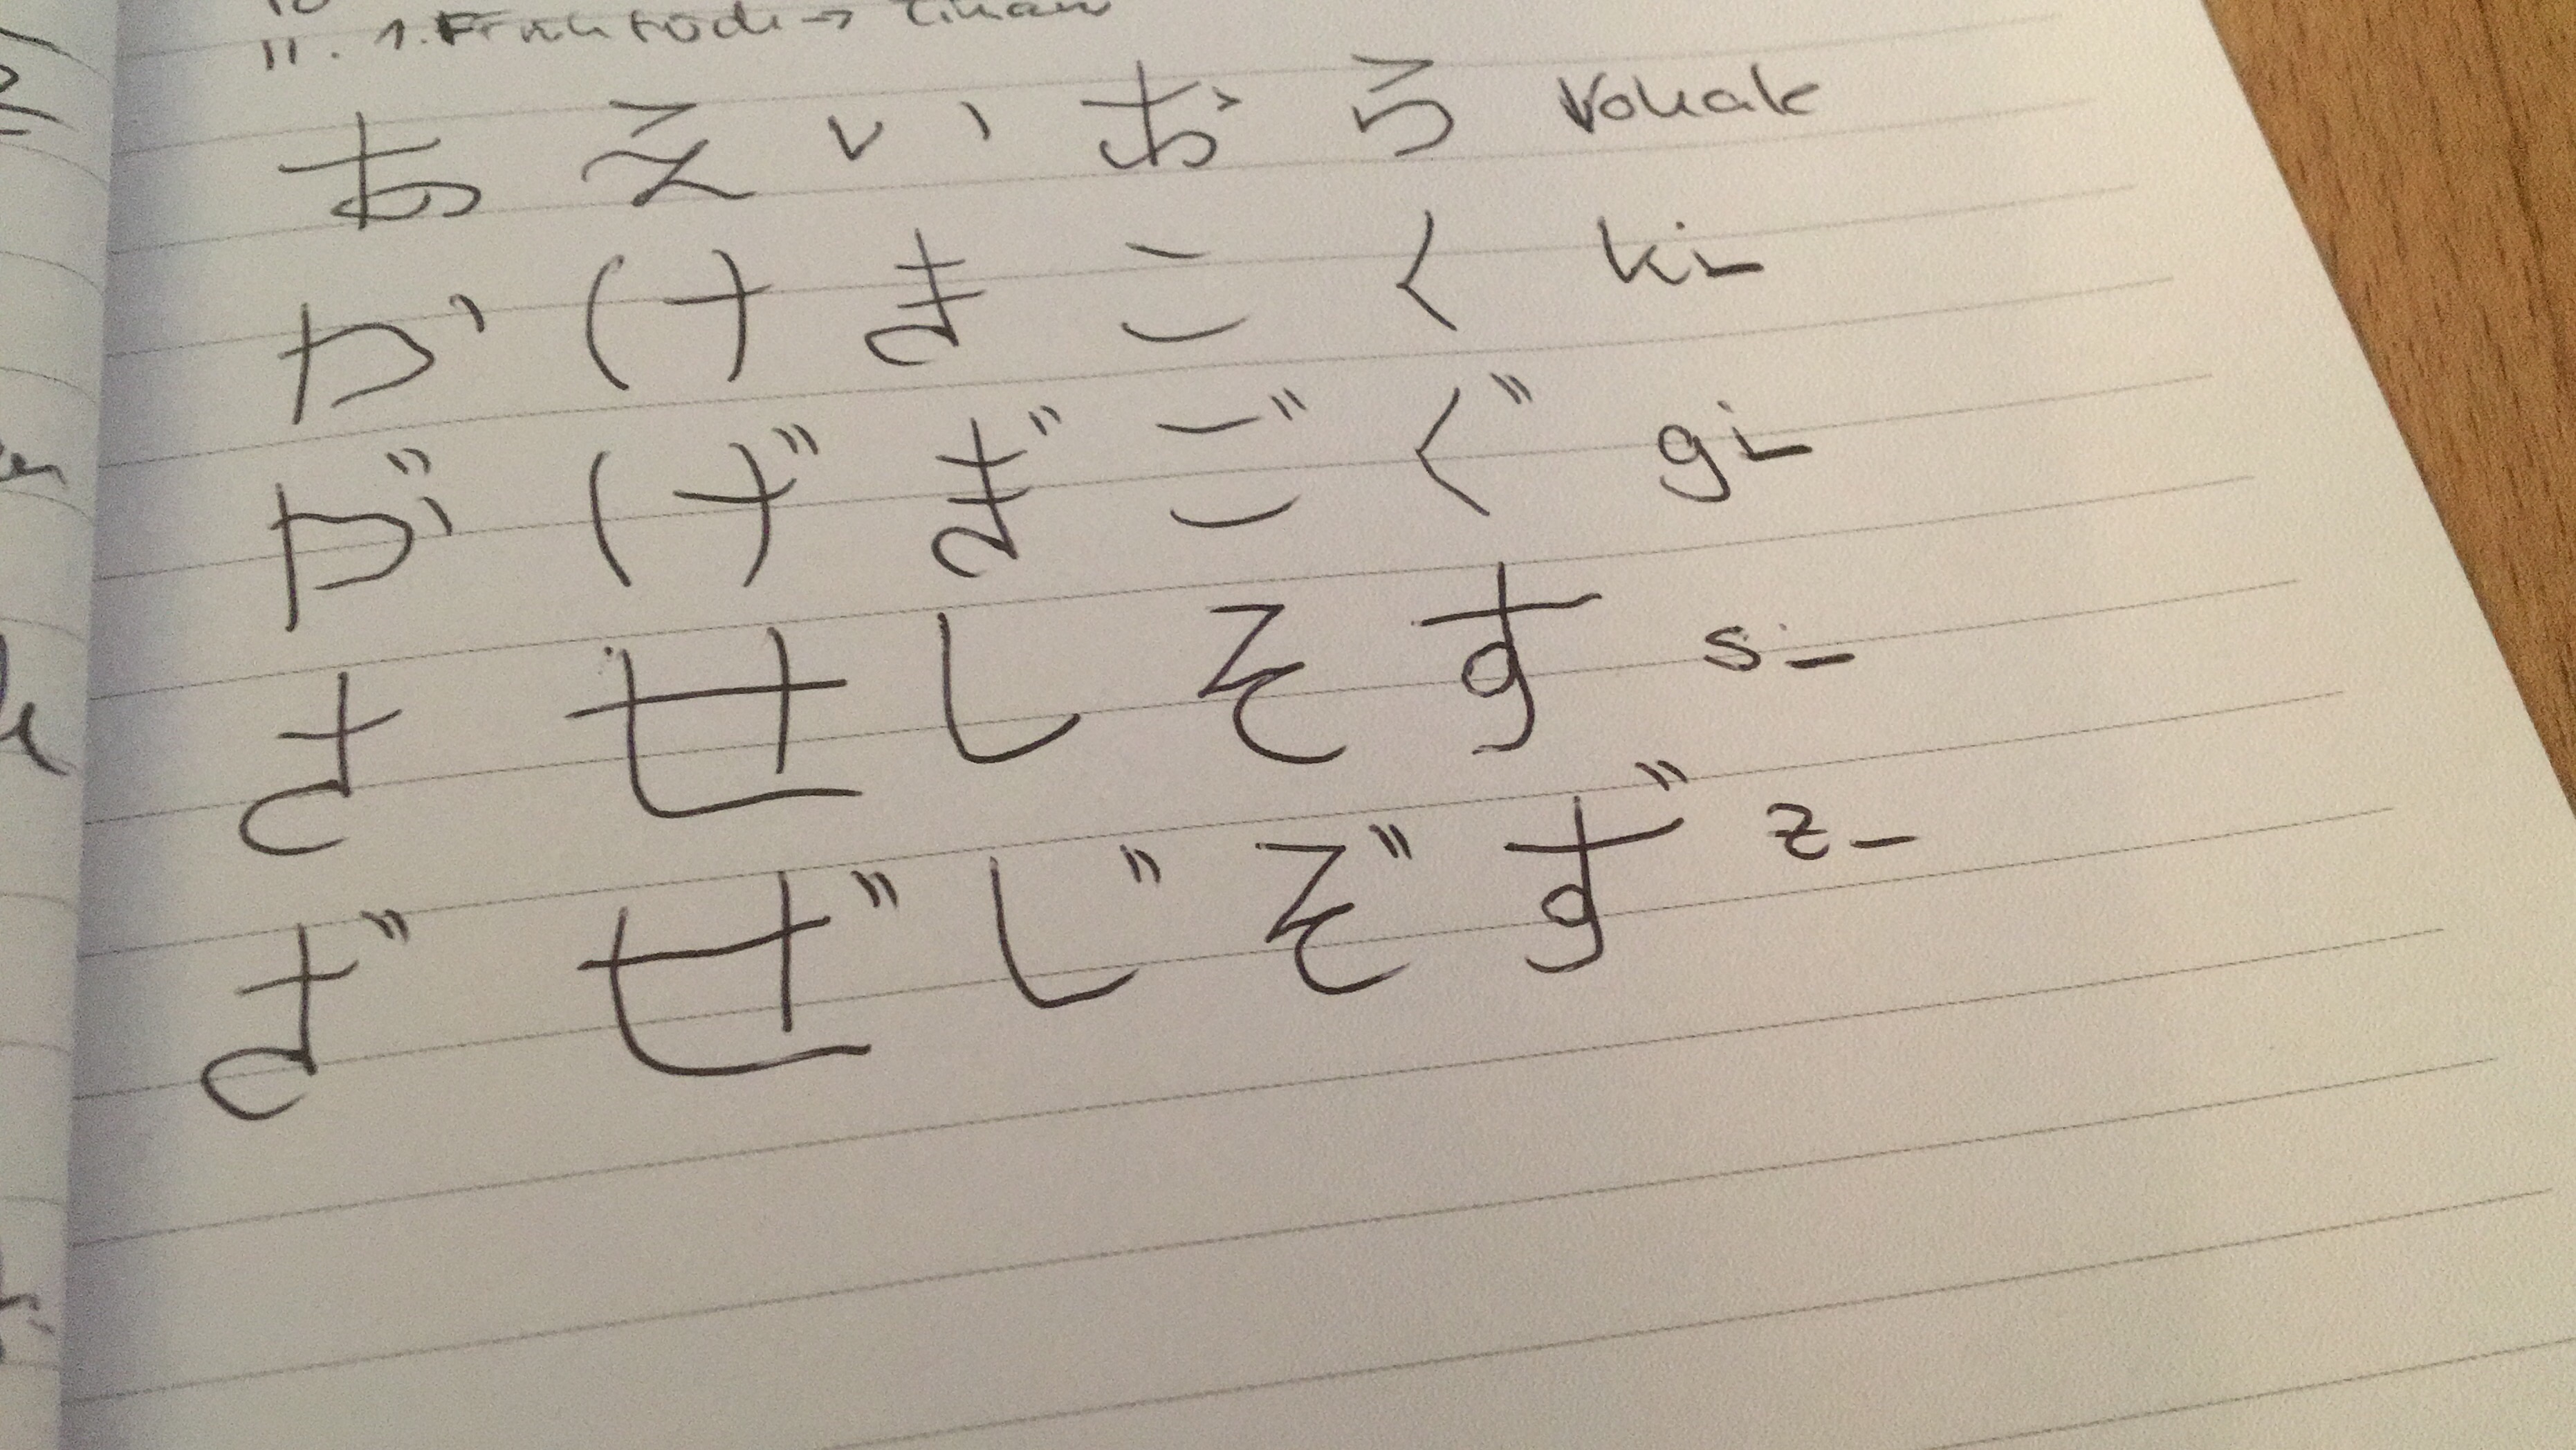 11. 1.
あ え い お う Vokale
か け き こ く ki-
が げ ぎ ご ぐ gi-
さ せ し そ す s-
ざ ぜ じ ぞ ず z-